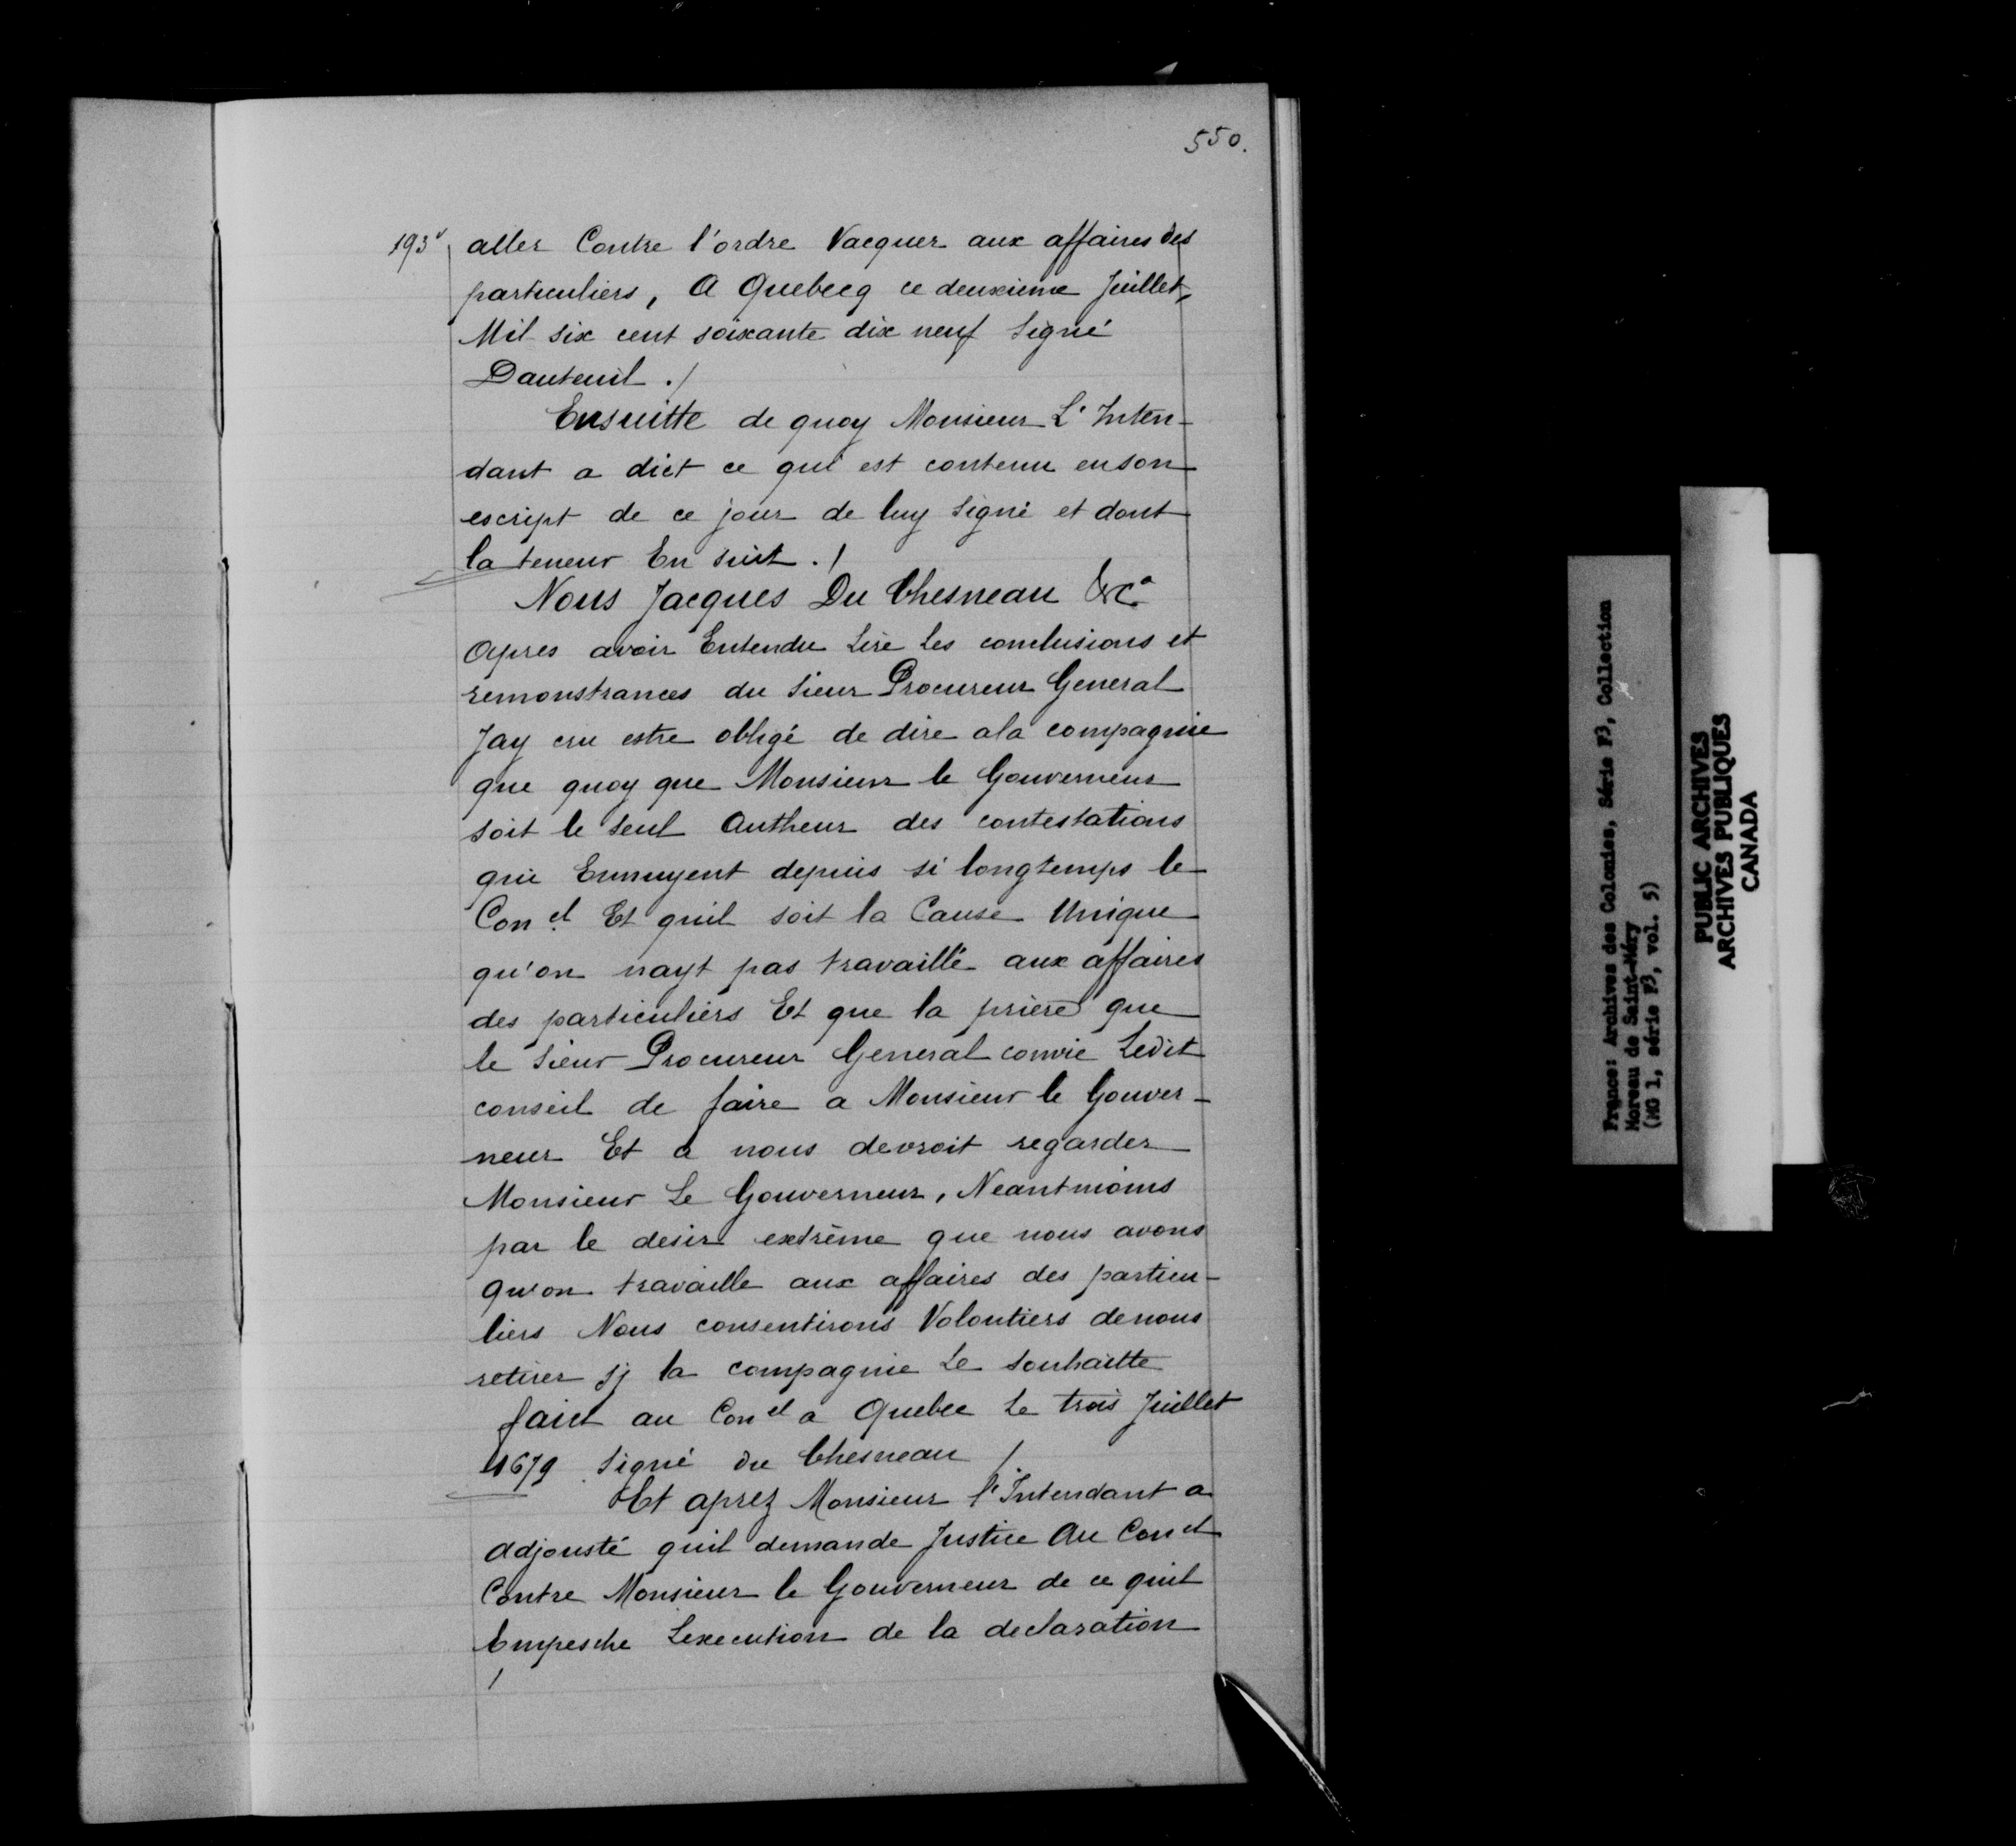 550.
193v aller Contre l'ordre Vacquer aux affaires des
particuliers, A Quebecq ce deuxieme Juillet,
Mil six cent soixante dix neuf Signé
Dauteuil ./
Ensuitte de quoy Monsieur L'Inten-
dant a dict ce qui est contenu en son
escript de ce jour de luy signé et dont
la teneur En suit ./
Nous Jacques Du Chesneau &ca
Apres avoir Entendu Lire Les conclusions et
remonstrances du Sieur Procureur General
Jay cru estre obligé de dire ala compagnie
que quoy que Monsieur le Gouverneur
soit le seul Autheur des contestations
qui Ennuyent depuis si longtemps le
Con.el Et quil soit la Cause Unique
qu'on nayt pas travaillé aux affaires
des particuliers Et que la priere que
le Sieur Procureur General convie Ledit
conseil de faire a Monsieur le Gouver-
neur Et a nous devroit regarder
Monsieur Le Gouverneur, Neantmoins
par le desir extrème que nous avons
qu'on travaille aux affaires des particu-
liers Nous consentirons Volontiers denous
retirer sj la compagnie Le souhaitte
faict au Conel a Quebec Le trois Juillet
1679 Signé du Chesneau /
Et aprez Monsieur l'Intendant a
adjousté quil demande Justice Au Conel
Contre Monsieur le Gouverneur de ce quil
Empesche Lexecution de la declaration
/
France: Archives des Colonies, Série F3, Collection
Moreau de Saint-Méry
(MG 1, série F3, vol. 5)
PUBLIC ARCHIVES
ARCHIVES PUBLIQUES
CANADA